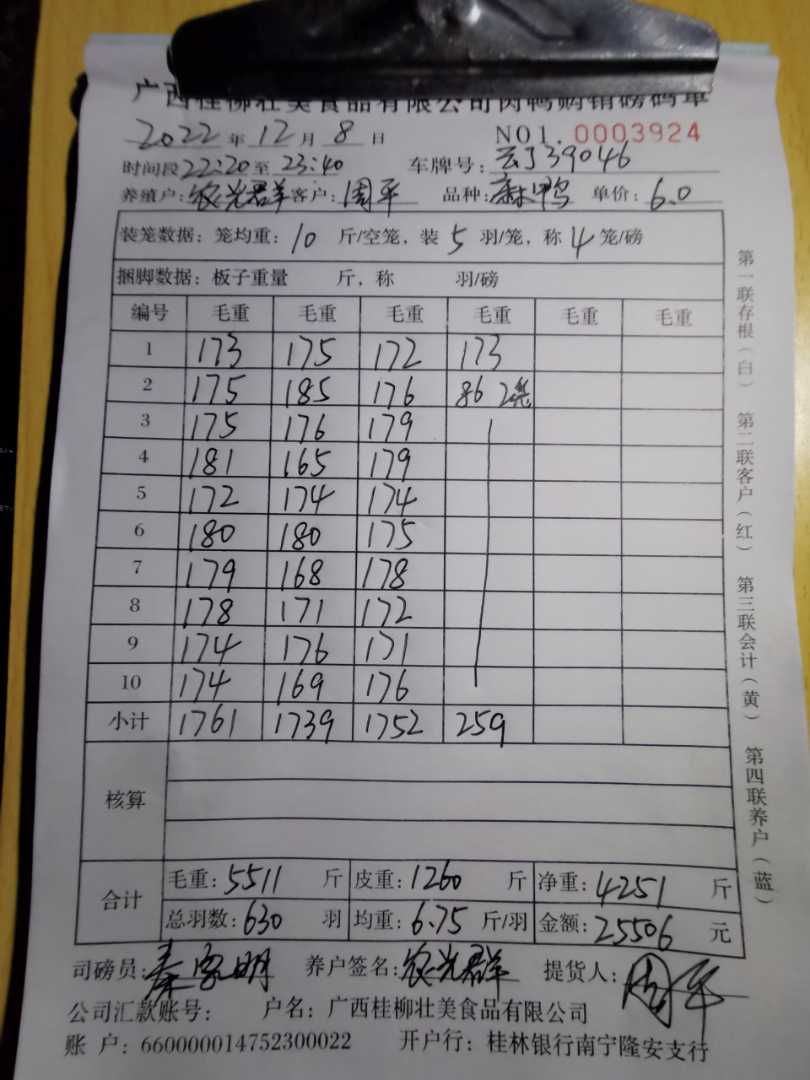 广西桂柳壮美食品有限公司肉鸭购销磅码单
2022 年 12 月 8 日 NO1. 0003924
时间段 22:20 至 23:40 车牌号: 云J39046
养殖户: 农光群 客户: 周平 品种: 麻鸭 单价: 6.0
装笼数据: 笼均重: 10 斤/空笼, 装 5 羽/笼, 称 4 笼/磅
捆脚数据: 板子重量 斤, 称 羽/磅
编号 毛重 毛重 毛重 毛重 毛重 毛重
1 173 175 172 173
2 175 185 176 86 2笼
3 175 176 179
4 181 165 179
5 172 174 174
6 180 180 175
7 179 168 178
8 178 171 172
9 174 176 171
10 174 169 176
小计 1761 1739 1752 259
核算
合计 毛重: 5511 斤 皮重: 1260 斤 净重: 4251 斤
总羽数: 630 羽 均重: 6.75 斤/羽 金额: 25506 元
司磅员: 秦家明 养户签名: 农光群 提货人: 周平
公司汇款账号: 户名: 广西桂柳壮美食品有限公司
账 户: 660000014752300022 开户行: 桂林银行南宁隆安支行
第一联存根(白) 第二联客户(红) 第三联会计(黄) 第四联养户(蓝)